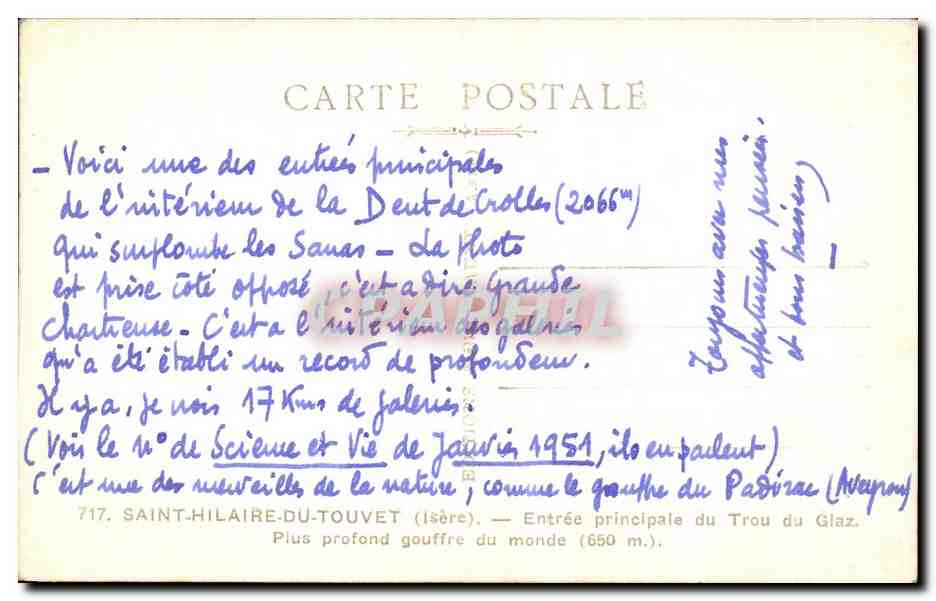 CARTE POSTALE
- Voici une des entrées principales
de l'intérieur de la Dent de Crolles (2066m)
qui surplombe les Sanas - La photo
est prise côté opposé, c'est a dire Grande
Chartreuse - C'est a l'intérieur des galeries
qu'a été établi un record de profondeur.
Il y a, je crois 17 Kms de galeries.
(Voir le n° de Science et Vie de Janvier 1951, ils en parlent)
C'est une des merveilles de la nature, comme le gouffre du Padirac (Aveyron)
Toujours avec nos
affectueuses pensées.
et bons baisers
717. SAINT-HILAIRE-DU-TOUVET (Isère). — Entrée principale du Trou du Glaz.
Plus profond gouffre du monde (650 m.).
CPAPHIL